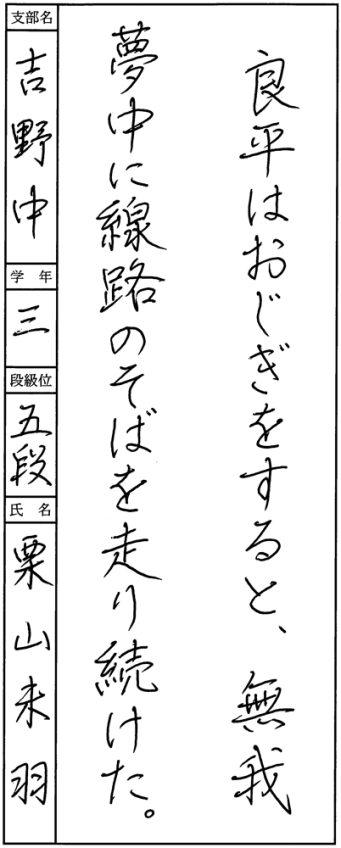 良平はおじぎをすると、無我
夢中に線路のそばを走り続けた。
支部名
吉野中
学年
三
段級位
五段
氏名
栗山未羽